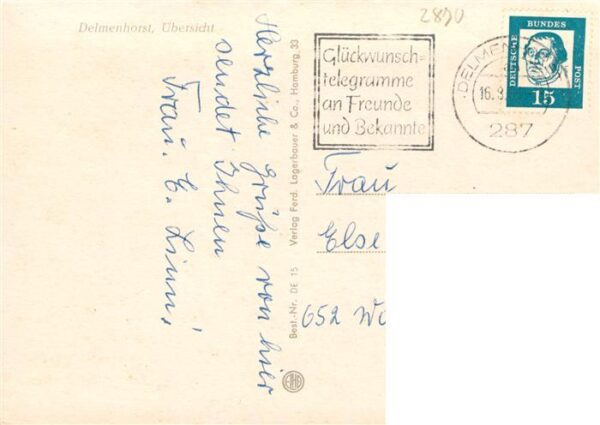 Delmenhorst, Übersicht
Herzliche Grüße von hier
sendet Ihnen
Frau. E. Linn,
Best.-Nr. DE 15 Verlag Ferd. Lagerbauer & Co., Hamburg 33
2890
Glückwunsch=
telegramme
an Freunde
und Bekannte
DELMEN
16.3.
287
DEUTSCHE
BUNDES
POST
15
Frau
Else
652 Wo